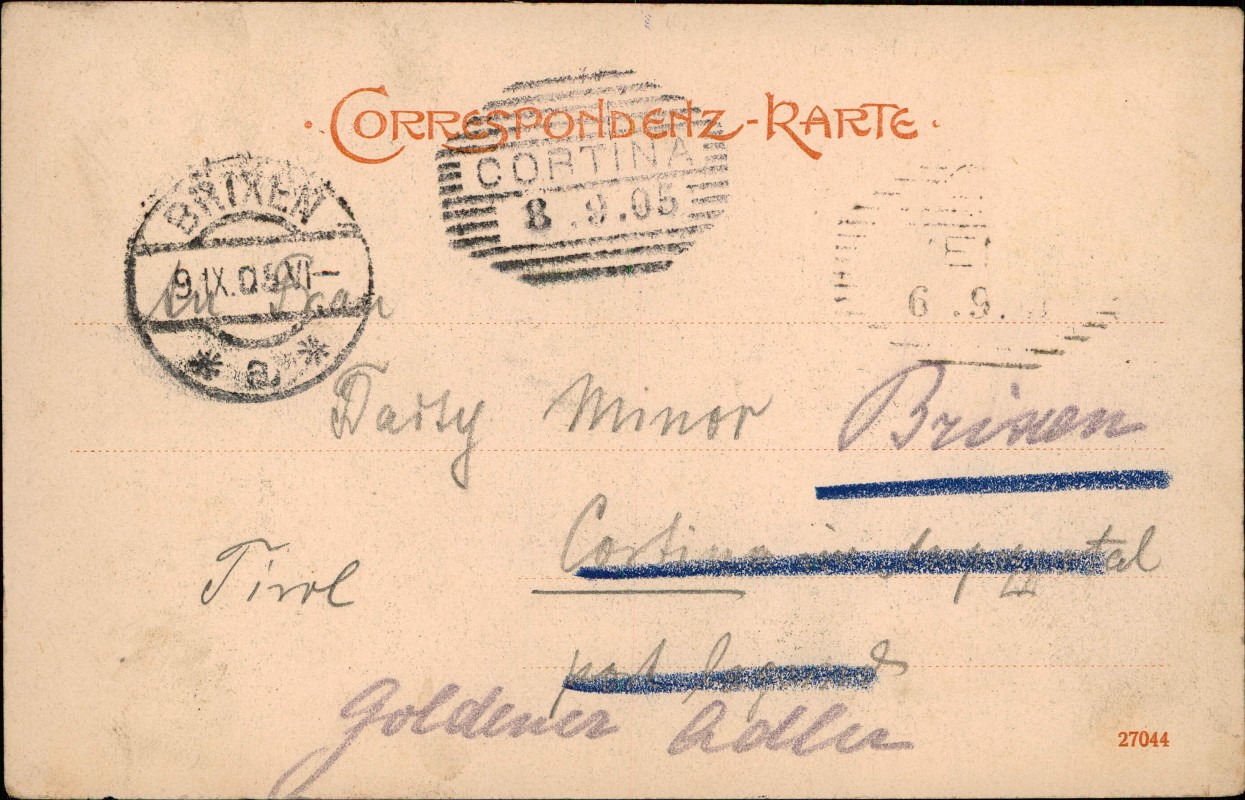 · CORRESPONDENZ-KARTE ·
CORTINA
8.9.05
BRIXEN
9.IX.05 VI–
* a *
6.9.
An Frau
Minor
Brixen
Cortina im
Tirol
post lagernd
Goldener Adler
27044